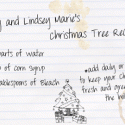 y and Lindsey Marie's
Christmas Tree Rec
parts of water
of corn syrup
tablespoons of Bleach
*add daily or
to keep your Ch
fresh and green
the